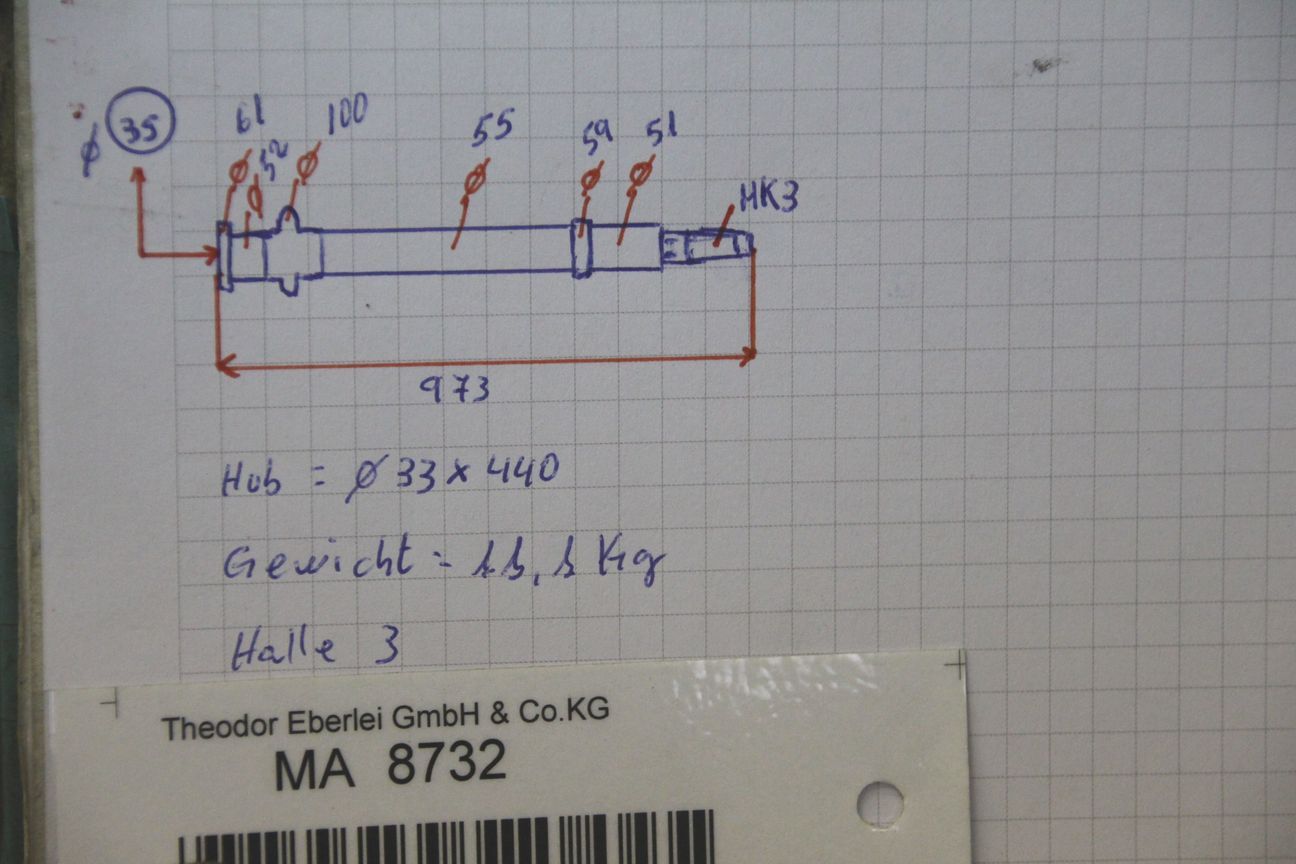 ø 35
61
52
100
55
59
51
HK3
ø ø ø ø ø ø
973
Hub = ø 33 x 440
Gewicht = 11,1 Kg
Halle 3
Theodor Eberlei GmbH & Co.KG
MA 8732